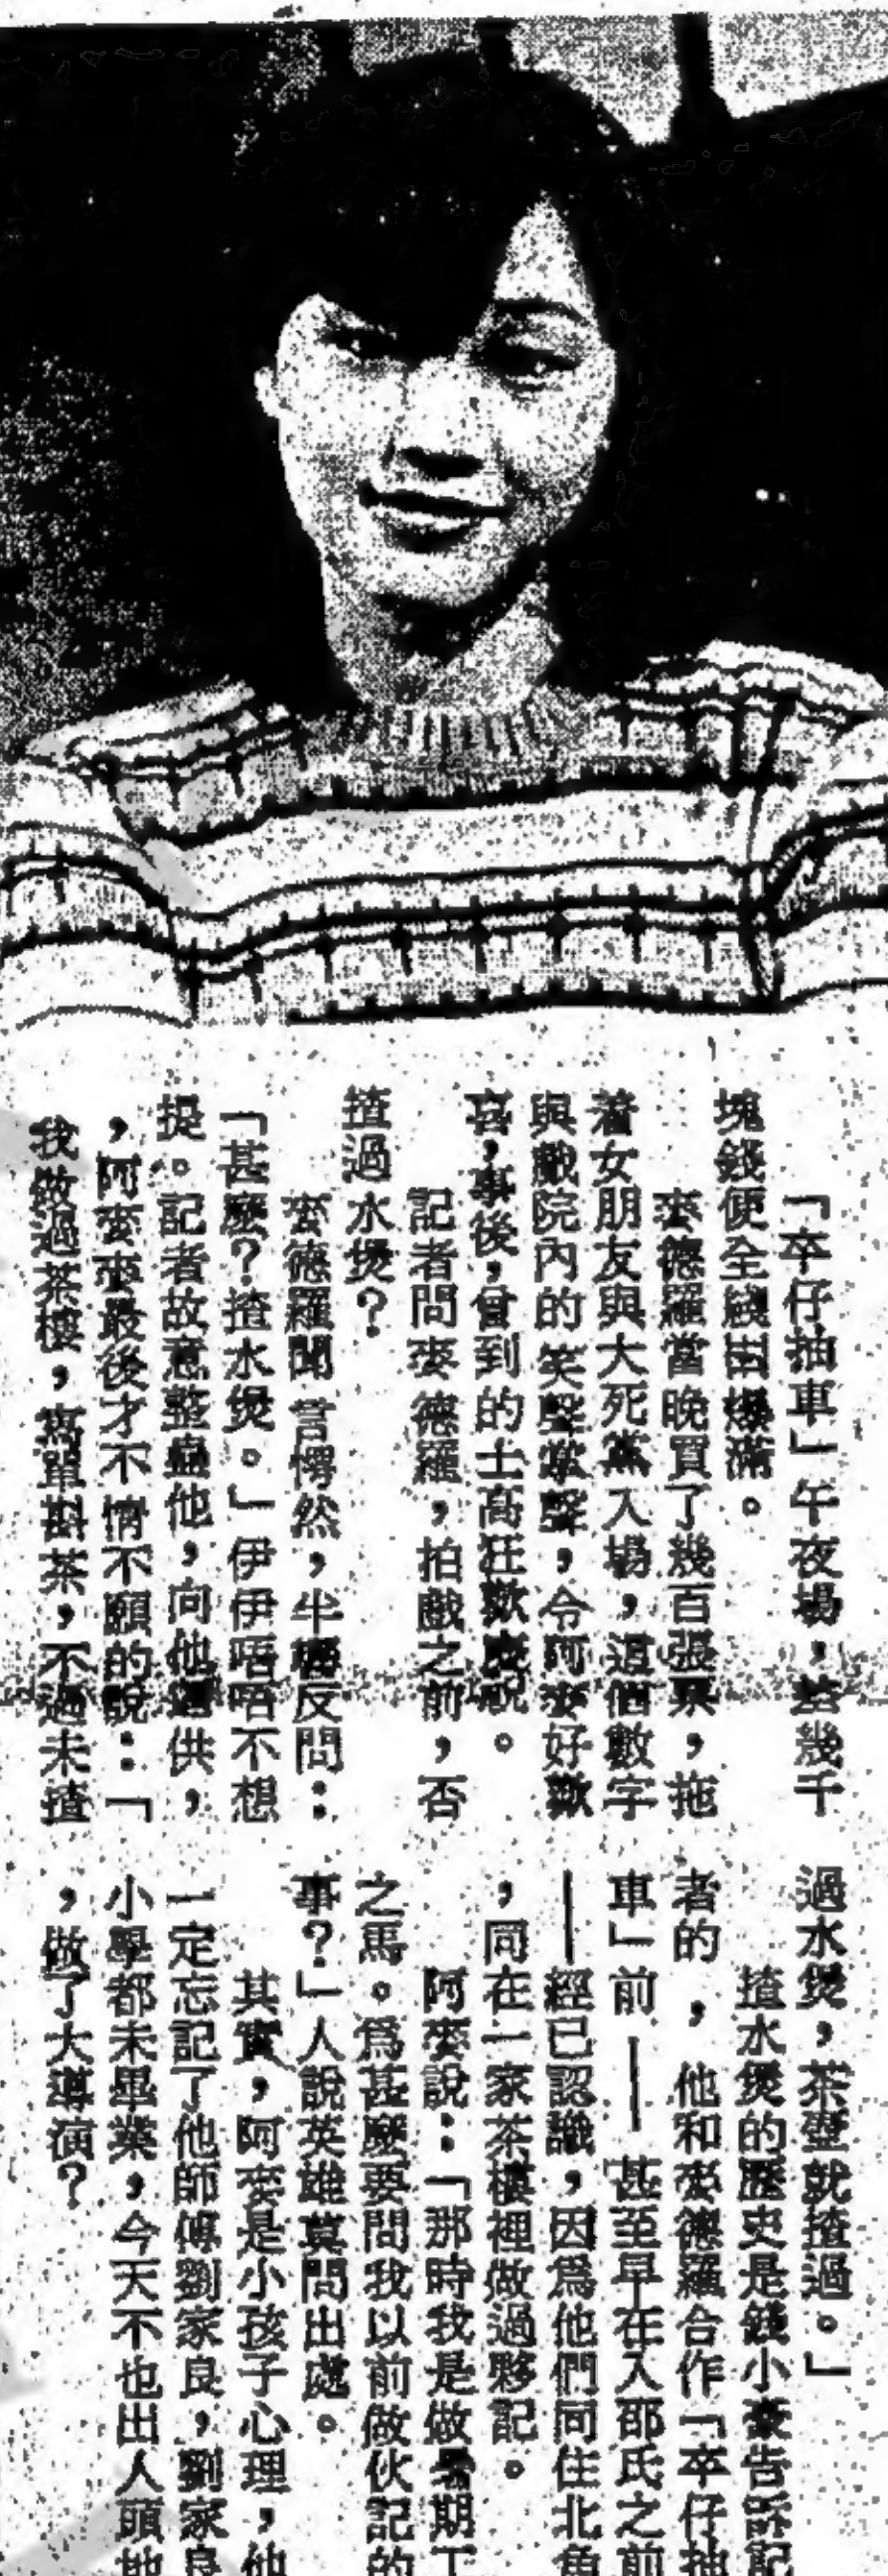 「卒仔抽車」午夜場，差幾千
塊錢便全綫出爆滿。
麥德羅當晚買了幾百張票，拖
着女朋友與大死黨入場，這個數字
與戲院內的笑聲掌聲，令阿麥好歡
喜，事後，曾到的士高狂歡慶祝。
記者問麥德羅，拍戲之前，否
揸過水煲？
麥德羅聞言愕然，半晌反問：
「甚麼？揸水煲。」伊伊唔唔不想
提。記者故意整蠱他，向他逼供，
，阿麥麥最後才不情不願的說：「
我做過茶樓，寫單斟茶，不過未揸
過水煲，茶壺就揸過。」
揸水煲的歷史是錢小豪告訴記
者的，他和麥德羅合作「卒仔抽
車」前——甚至早在入邵氏之前
——經已認識，因爲他們同住北角
，同在一家茶樓裡做過夥記。
阿麥說：「那時我是做暑期工
之馬。爲甚麼要問我以前做伙記的
事？」人說英雄莫問出處。
其實，阿麥是小孩子心理，他
一定忘記了他師傅劉家良，劉家良
小學都未畢業，今天不也出人頭地
，做了大導演？